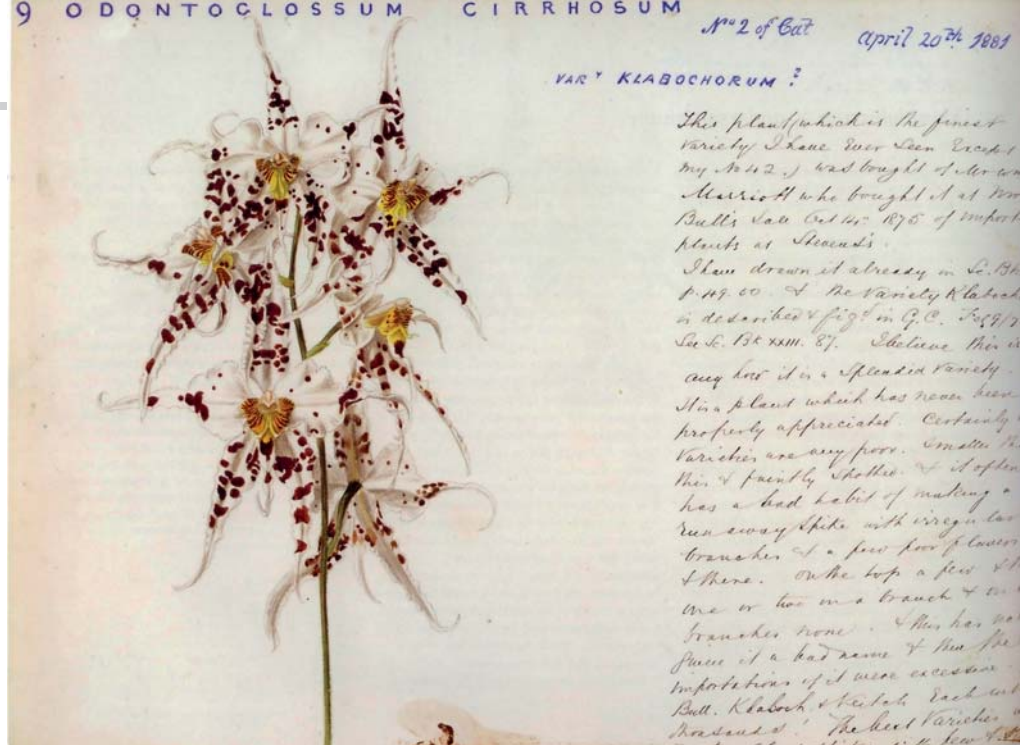 9 ODONTOGLOSSUM CIRRHOSUM
No 2 of Cat April 20th 1881
VARY KLABOCHORUM ?
This plant (which is the finest
variety I have Ever Seen Except
my No 42.) was bought of Mr
Marriott who bought it at
Bull's Sale Oct 14 1875 of
plants at Stevens's.
I have drawn it already in Sc. Bk
p. 49. 60. & the Variety
is described & fig: in G.C.
See Sc. Bk XXIII. 87. I believe this
any how it is a Splendid Variety.
It is a plant which has never been
properly appreciated. Certainly
Varieties are very poor. Smaller
this & faintly Spotted. & it often
has a bad habit of making a
run away Spike with irregular
branches & a few poor flowers
& there. On the top a few
one or two on a branch & on
branches none. & this has
given it a bad name & then the
importations of it were excessive.
Bull. Klaboch & Veitch Each
thousands! The best Varieties